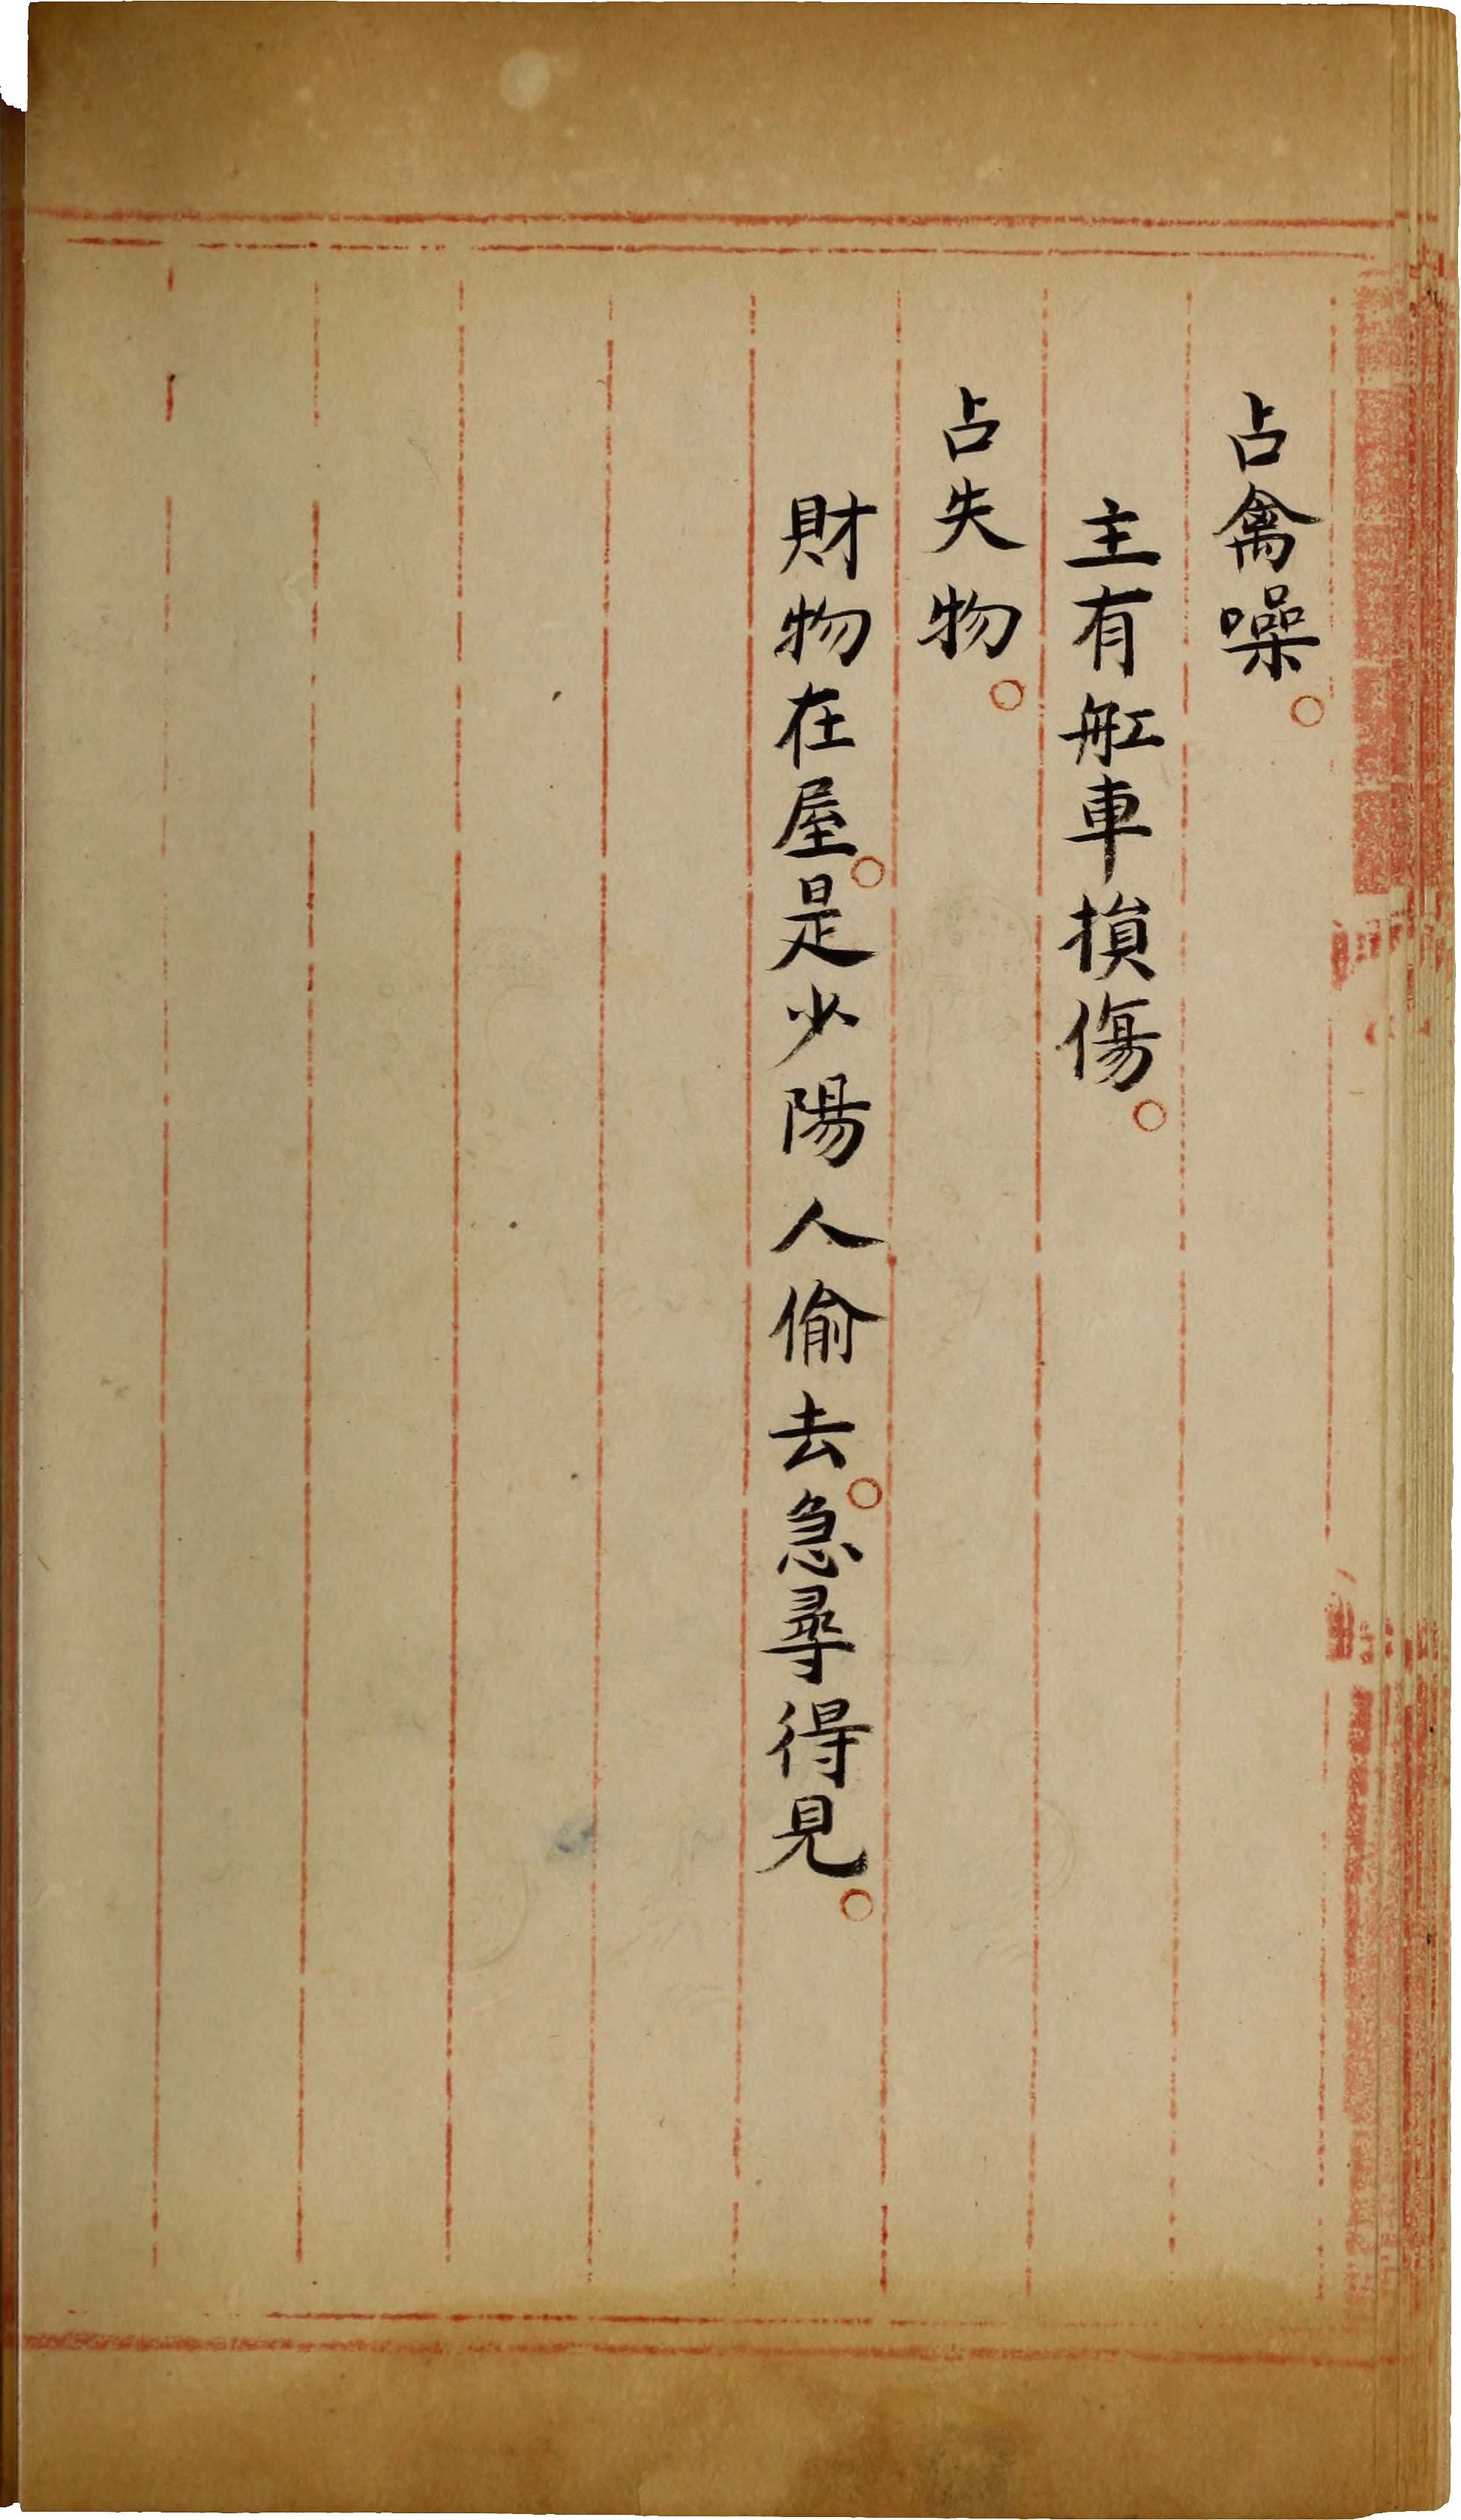 占禽噪。
主有舡車損傷。
占失物。
財物在屋。是少陽人偷去。急尋得見。